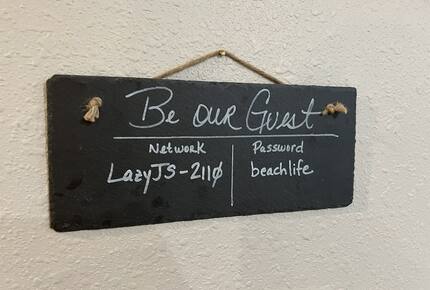 Be our Guest
Network Password
LazyJS-2110 beachlife